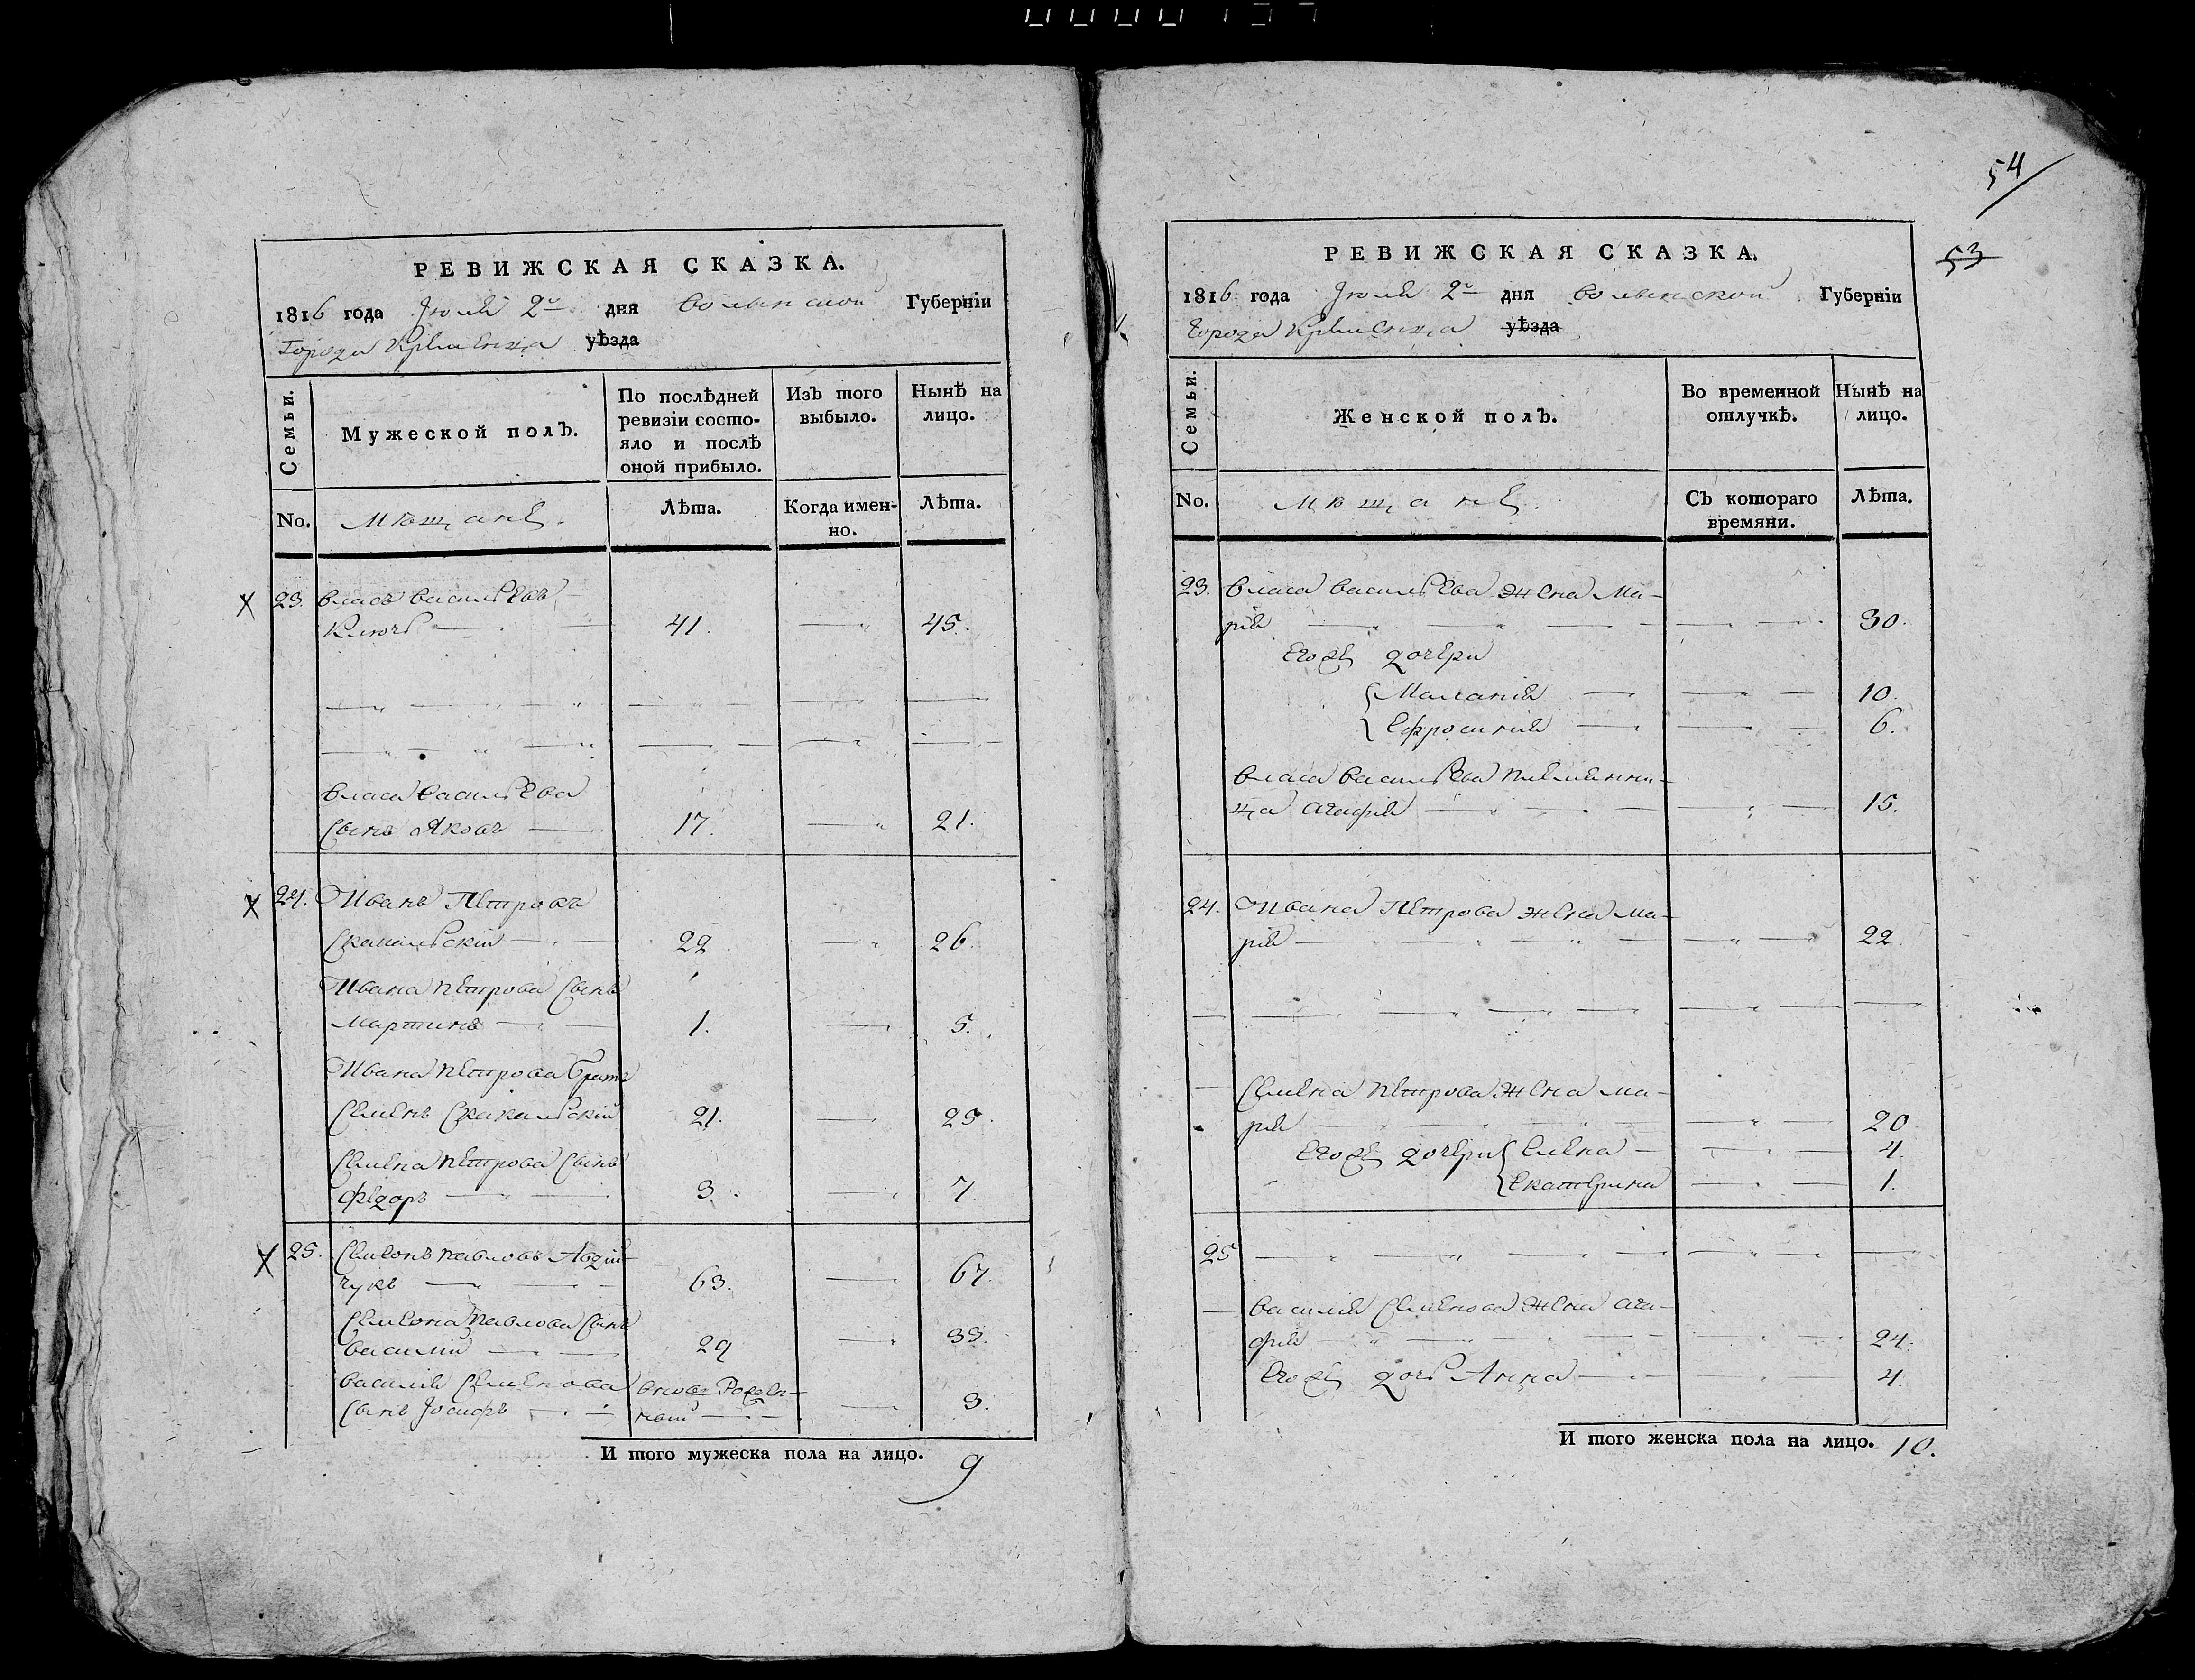 54
53
РЕВИЖСКАЯ СКАЗКА.
1816 года Июля 2го дня Волынской Губерніи
Города Кременца уѣзда
Семьи.
Мужеской полъ.
По послѣдней
ревизіи состо-
яло и послѣ
оной прибыло.
Изъ того
выбыло.
Нынѣ на
лицо.
No.
Мѣщане.
Лѣта.
Когда имен-
но.
Лѣта.
23. Власъ Васильевъ
Ключь 41. 45.
Власа Васильева
Сынъ Яковъ 17. 21.
24. Иванъ Петровъ
Скакальскій 22 26.
Ивана Петрова Сынъ
Мартинъ 1. 5.
Ивана Петрова братъ
Семенъ Скакальскій 21. 25.
Семена Петрова Сынъ
Федоръ 3. 7.
25. Семіонъ Павловъ Авдій-
чукъ 63. 67.
Семіона Павлова Сынъ
Василій 29 33.
Василія Семенова вновь Рожден-
Сынъ Іосифъ ный 3.
И того мужеска пола на лицо. 9
РЕВИЖСКАЯ СКАЗКА.
1816 года Июля 2го дня Волынской Губерніи
Города Кременца уѣзда
Семьи.
Женской полъ.
Во временной
отлучкѣ.
Нынѣ на
лицо.
No.
Мѣщане.
Съ котораго
времяни.
Лѣта.
23. Власа Васильева жена Ма-
рія 30.
Егоже дочери
Маланія 10.
Ефросинія 6.
Власа Васильева племянни-
ца Агафія 15.
24. Ивана Петрова жена Ма-
рія 22.
Семена Петрова жена Ма-
рія 20
Егоже дочери Елена 4.
Екатерина 1.
25
Василія Семенова жена Ага-
фія 24.
Егоже дочь Анна 4.
И того женска пола на лицо. 10.